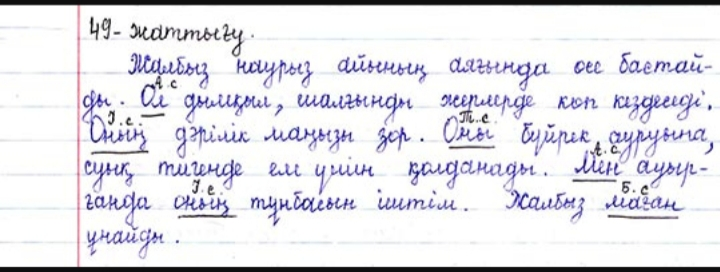 49- жаттығу.
Жалбыз наурыз айының аяғында өсе бастай-
А.с
ды. Ол дымқыл, шалғынды жерлерде көп кездеседі.
І.с. Т.с
Оның дәрілік маңызы зор. Оны бүйрек ауруына,
А.с.
суық тигенде ем үшін қолданады. Мен ауыр-
І.с. Б.с
ғанда оның тұнбасын іштім. Жалбыз маған
ұнайды.